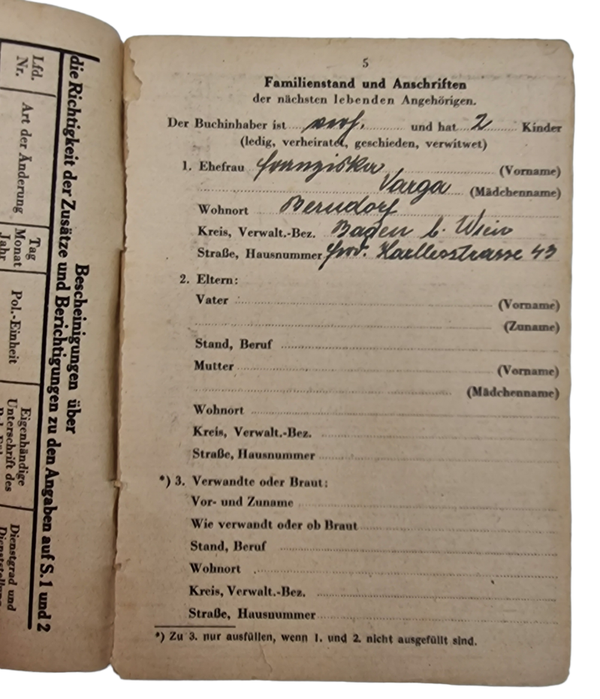 die Richtigkeit der Zusätze und Berichtigungen zu den Angaben auf S. 1 und 2
Bescheinigungen über
Lfd. Nr.
Art der Änderung
Tag
Monat
Jahr
Pol.-Einheit
Eigenhändige
Unterschrift des
Dienstgrad und
Dienststellung
5
Familienstand und Anschriften
der nächsten lebenden Angehörigen.
Der Buchinhaber ist verh. und hat 2 Kinder
(ledig, verheiratet, geschieden, verwitwet)
1. Ehefrau Franziska (Vorname)
Varga (Mädchenname)
Wohnort Berndorf
Kreis, Verwalt.-Bez. Baden b. Wien
Straße, Hausnummer 43
2. Eltern:
Vater (Vorname)
(Zuname)
Stand, Beruf
Mutter (Vorname)
(Mädchenname)
Wohnort
Kreis, Verwalt.-Bez.
Straße, Hausnummer
*) 3. Verwandte oder Braut:
Vor- und Zuname
Wie verwandt oder ob Braut
Stand, Beruf
Wohnort
Kreis, Verwalt.-Bez.
Straße, Hausnummer
*) Zu 3. nur ausfüllen, wenn 1. und 2. nicht ausgefüllt sind.